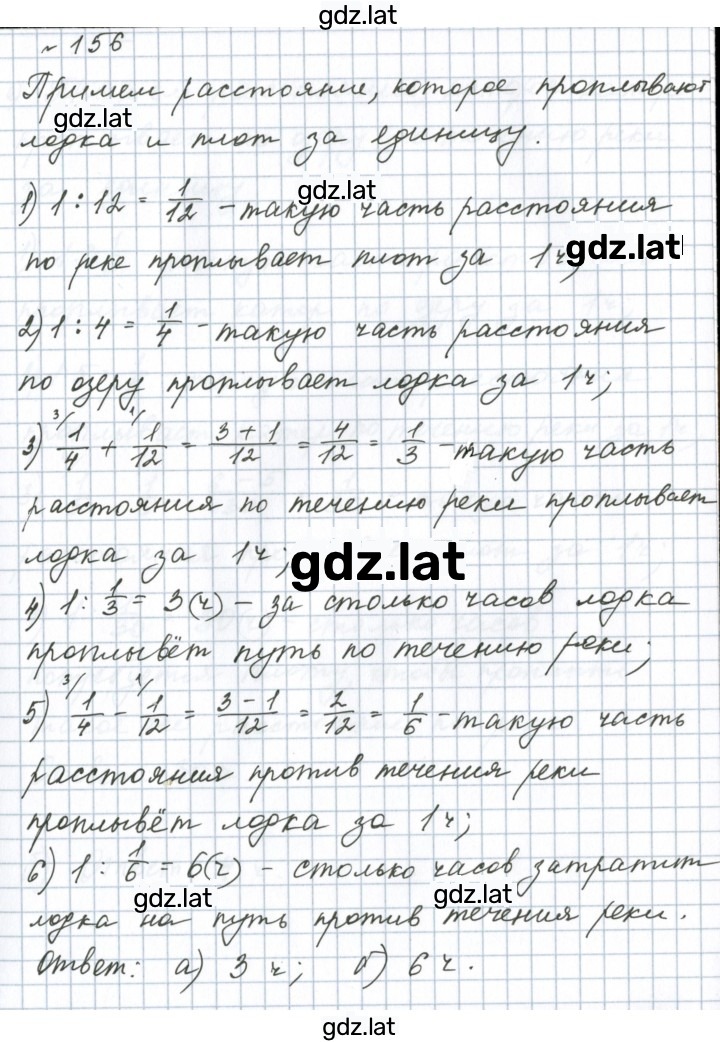 gdz.lat
№ 156
Примем расстояние, которое проплывают
gdz.lat
лодка и плот за единицу.
gdz.lat
1) 1 : 12 = 1/12 - такую часть расстояния
gdz.lat
по реке проплывает плот за 1ч;
2) 1 : 4 = 1/4 - такую часть расстояния
по озеру проплывает лодка за 1ч;
3) ³⁄1/4 + ¹⁄1/12 = (3+1)/12 = 4/12 = 1/3 - такую часть
расстояния по течению реки проплывает
лодка за 1ч;
gdz.lat
4) 1 : 1/3 = 3(ч) - за столько часов лодка
проплывёт путь по течению реки;
5) ³⁄1/4 - ¹⁄1/12 = (3-1)/12 = 2/12 = 1/6 - такую часть
расстояния против течения реки
проплывёт лодка за 1ч;
6) 1 : 1/6 = 6(ч) - столько часов затратит
gdz.lat
gdz.lat
лодка на путь против течения реки.
Ответ: а) 3 ч; б) 6 ч.
gdz.lat